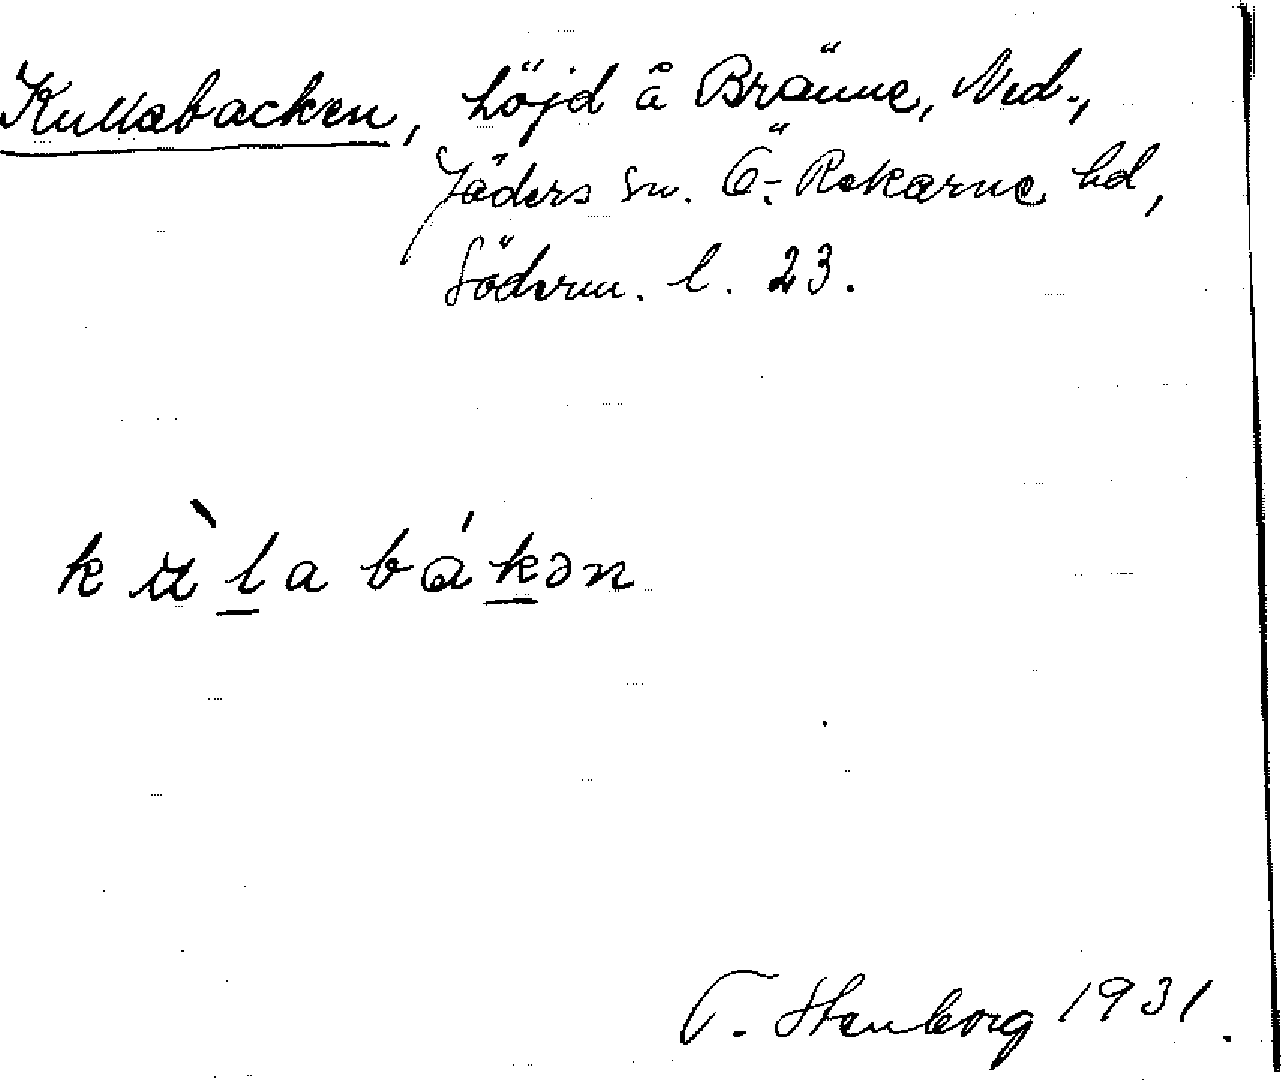 Kullabacken, höjd å Bränne, Ned.,
Jäders sn. Ö. Rekarne hd,
Söderm. l. 23.
kùlabákən
T. Stenborg 1931.